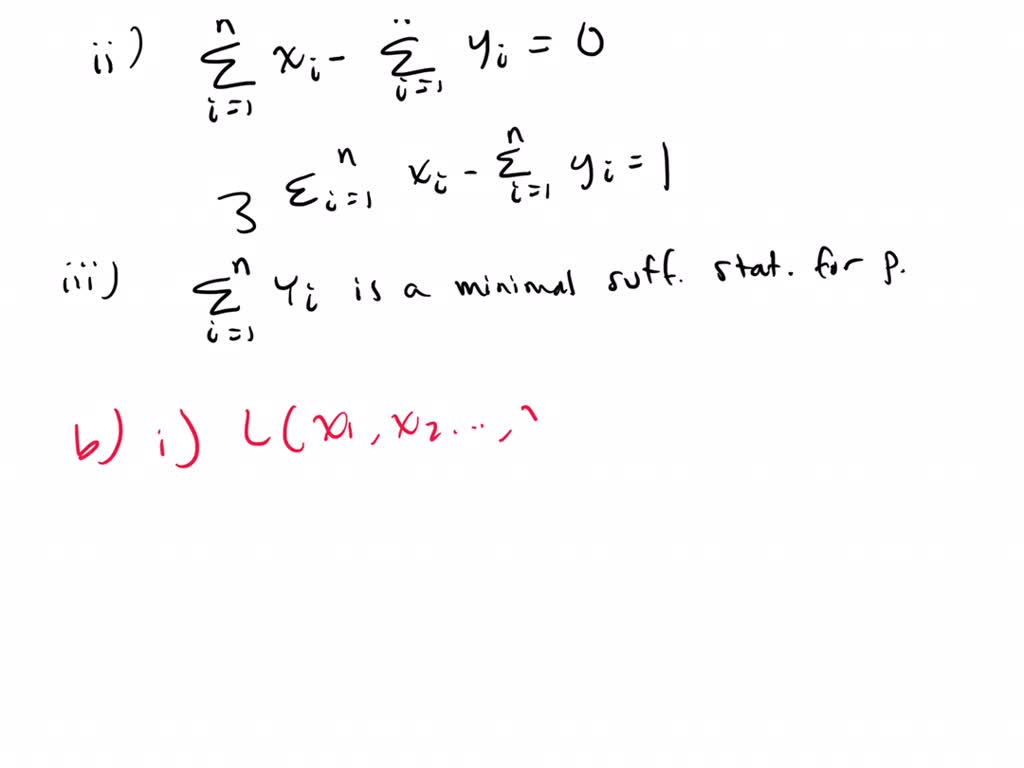 ii) n∑i=1 xi - ∑i=1 yi = 0
3 ∑i=1 n xi - n∑i=1 yi = 1
iii) n∑i=1 Yi is a minimal suff. stat. for p.
b) i) L(x1, x2 ...,